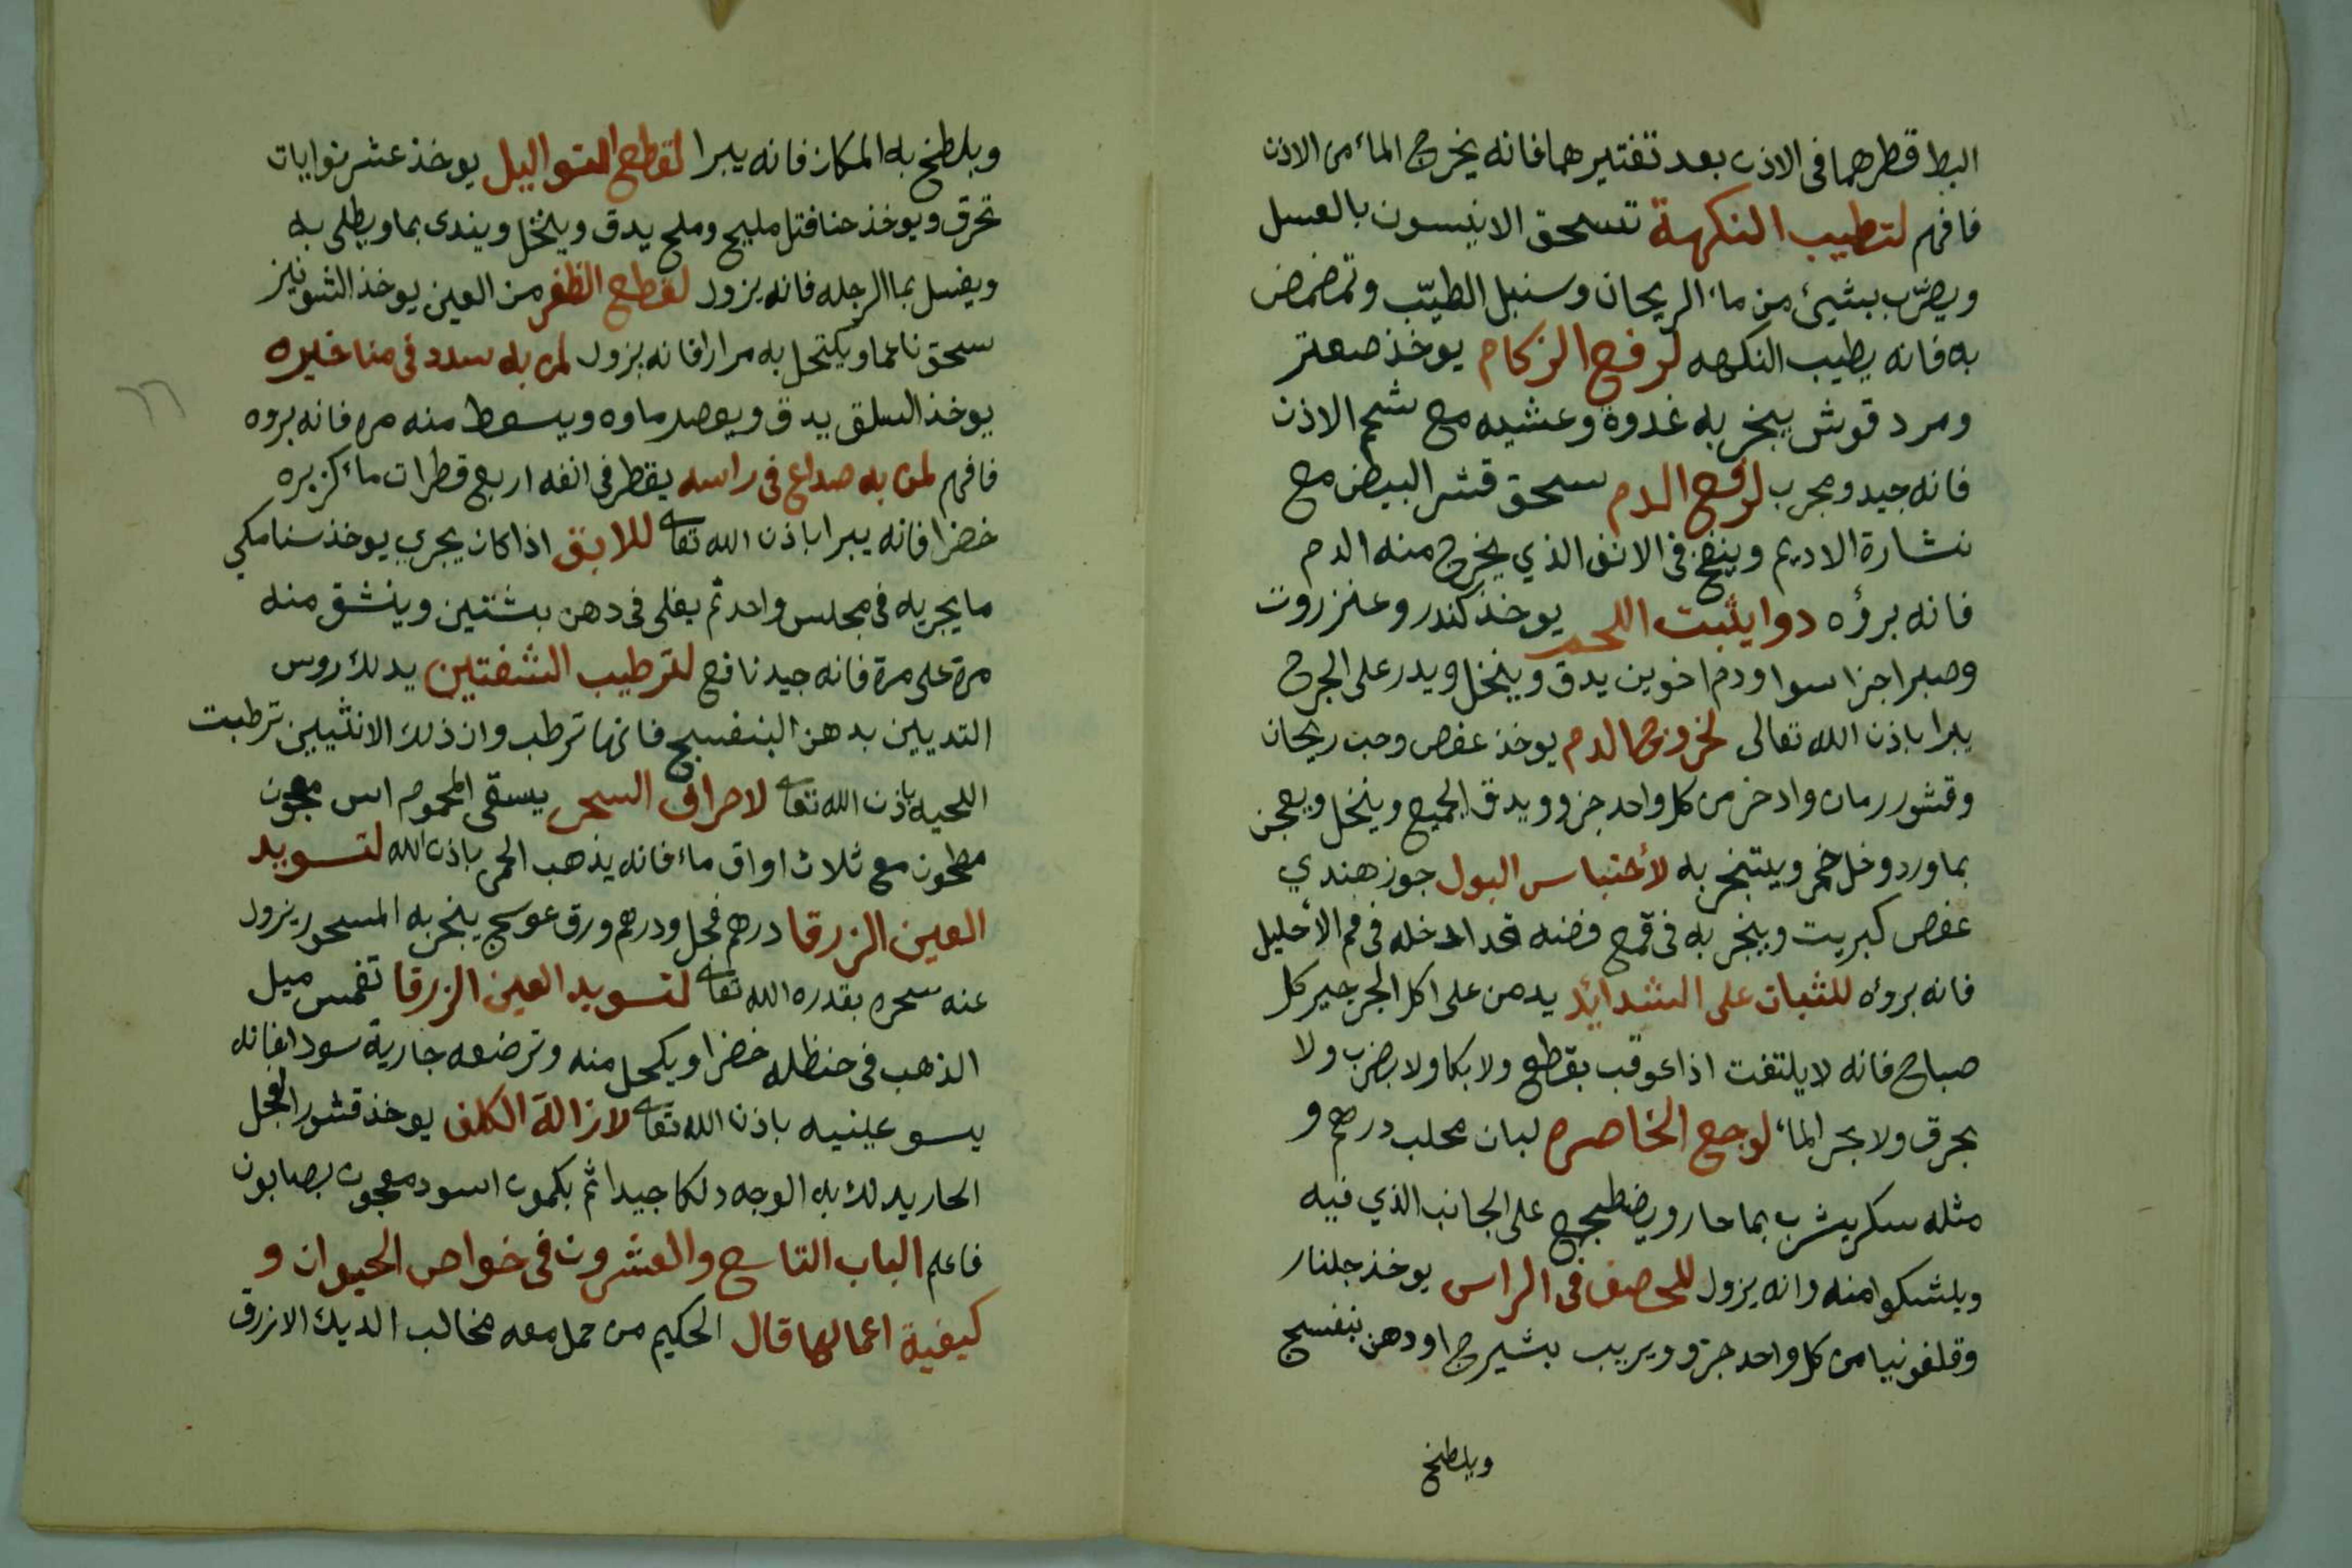 البط قطرهما فى الاذن بعد تفتيرهما فانه يخرج الماء من الاذن
فافهم لتطيب النكهة تسحق الانيسون بالعسل
ويضرب بشيئ من ماء الريحان وسنبل الطيّب وتمضمض
به فانه يطيب النكهه لرفع الزكام يوخذ صعتر
ومردقوش يبخر به غدوة وعشيه مع شحم الاذن
فانه جيد ومجرب لرفع الدم سحق قشر البيض مع
نشارة الاديم وينفخ فى الانف الذي يخرج منه الدم
فانه برؤه دوا يثبت اللحم يوخذ كندر وعنزروت
وصبر اجزا سوا ودم اخوين يدق وينخل ويدر على الجرح
يبرا باذن الله تعالى لخروج الدم يوخذ عفص وحب ريحان
وقشور رمان وادخر من كل واحد جزو ويدق الجميع وينخل ويعجن
بماورد وخل خمر ويتبخر به لأختباس البول جوز هندي
عفص كبريت ويبخر به فى قمع فضه تدخله فى فم الأحليل
فانه بروه للثبات على الشدائد يدمن على اكل الجرجير كل
صباح فانه لا يلتفت اذا عوقب بقطع ولا بكا ولا بضرب ولا
بحرق ولا بحر الماء لوجع الخاصره لبان محلب درهم و
مثله سكر يشرب بما حار ويضطجع على الجانب الذي فيه
ويشكوا منه وانه يزول للحصف فى الراس يوخذ جلنار
وقلفونيا من كل واحد جزو ويريب بشيرج او دهن بنفسج
ويلطخ
ويلطخ به المكان فانه يبرا لقطع التواليل يوخذ عشر نوايات
تحرق ويوخذ حنا فتل مليح وملح يدق وينخل ويندى بما ويطلى به
ويغسل بما الرجله فانه يزول لقطع الظفر من العين يوخذ الشونيز
سحق ناعما ويكتحل به مرارا فانه يزول لمن به سدد فى مناخيره
يوخذ السلق يدق ويعصر ماوه ويسعط منه مره فانه بروه
فافهم لمن به صداع فى راسه يقطر فى انفه اربع قطرات ماء كزبره
خضرا فانه يبرا باذن الله تعا للابق اذا كان يجري يوخذ سنا مكي
ما يجريه فى مجلس واحد ثم يغلى فى دهن بشتين وينشق منه
مرة على مرة فانه جيد نافع لترطيب الشفتين يدلك روس
التديين بدهن البنفسج فانها ترطب وان ذلك الانثيين ترطبت
اللحيه باذن الله تعا لاحراق السحر يسقى المحموم اس معجون
مطحون مع ثلاث اواق ماء فانه يذهب الحمى باذن الله لتسويد
العين الزرقا درهم فجل ودرهم ورق عوسج يبخر به المسحور يزول
عنه سحره بقدره الله تعا لتسويد العين الزرقا تغمس ميل
الذهب فى حنظله خضرا ويكحل منه وترضعه جارية سودا فانه
يسو عينيه باذن الله تعا لازالة الكلف يوخذ قشور الفجل
الحار يدلك به الوجه دلكا جيدا ثم بكمون اسود معجون بصابون
فاعلم الباب التاسع والعشرون فى خواص الحيوان و
كيفية اعمالها قال الحكيم من حمل معه مخالب الديك الازرق